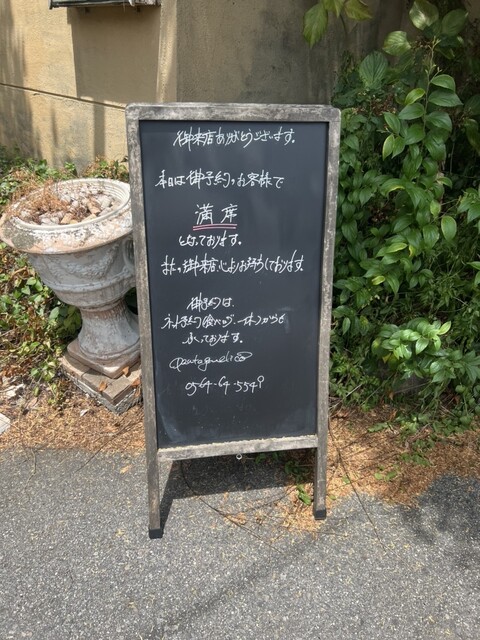 御来店ありがとうございます。
本日は御予約のお客様で
満席
となっております。
またの御来店心よりお待ちしております
御予約は、
ネット予約(食べログ、一休)からも
承っております。
0564-64-5549